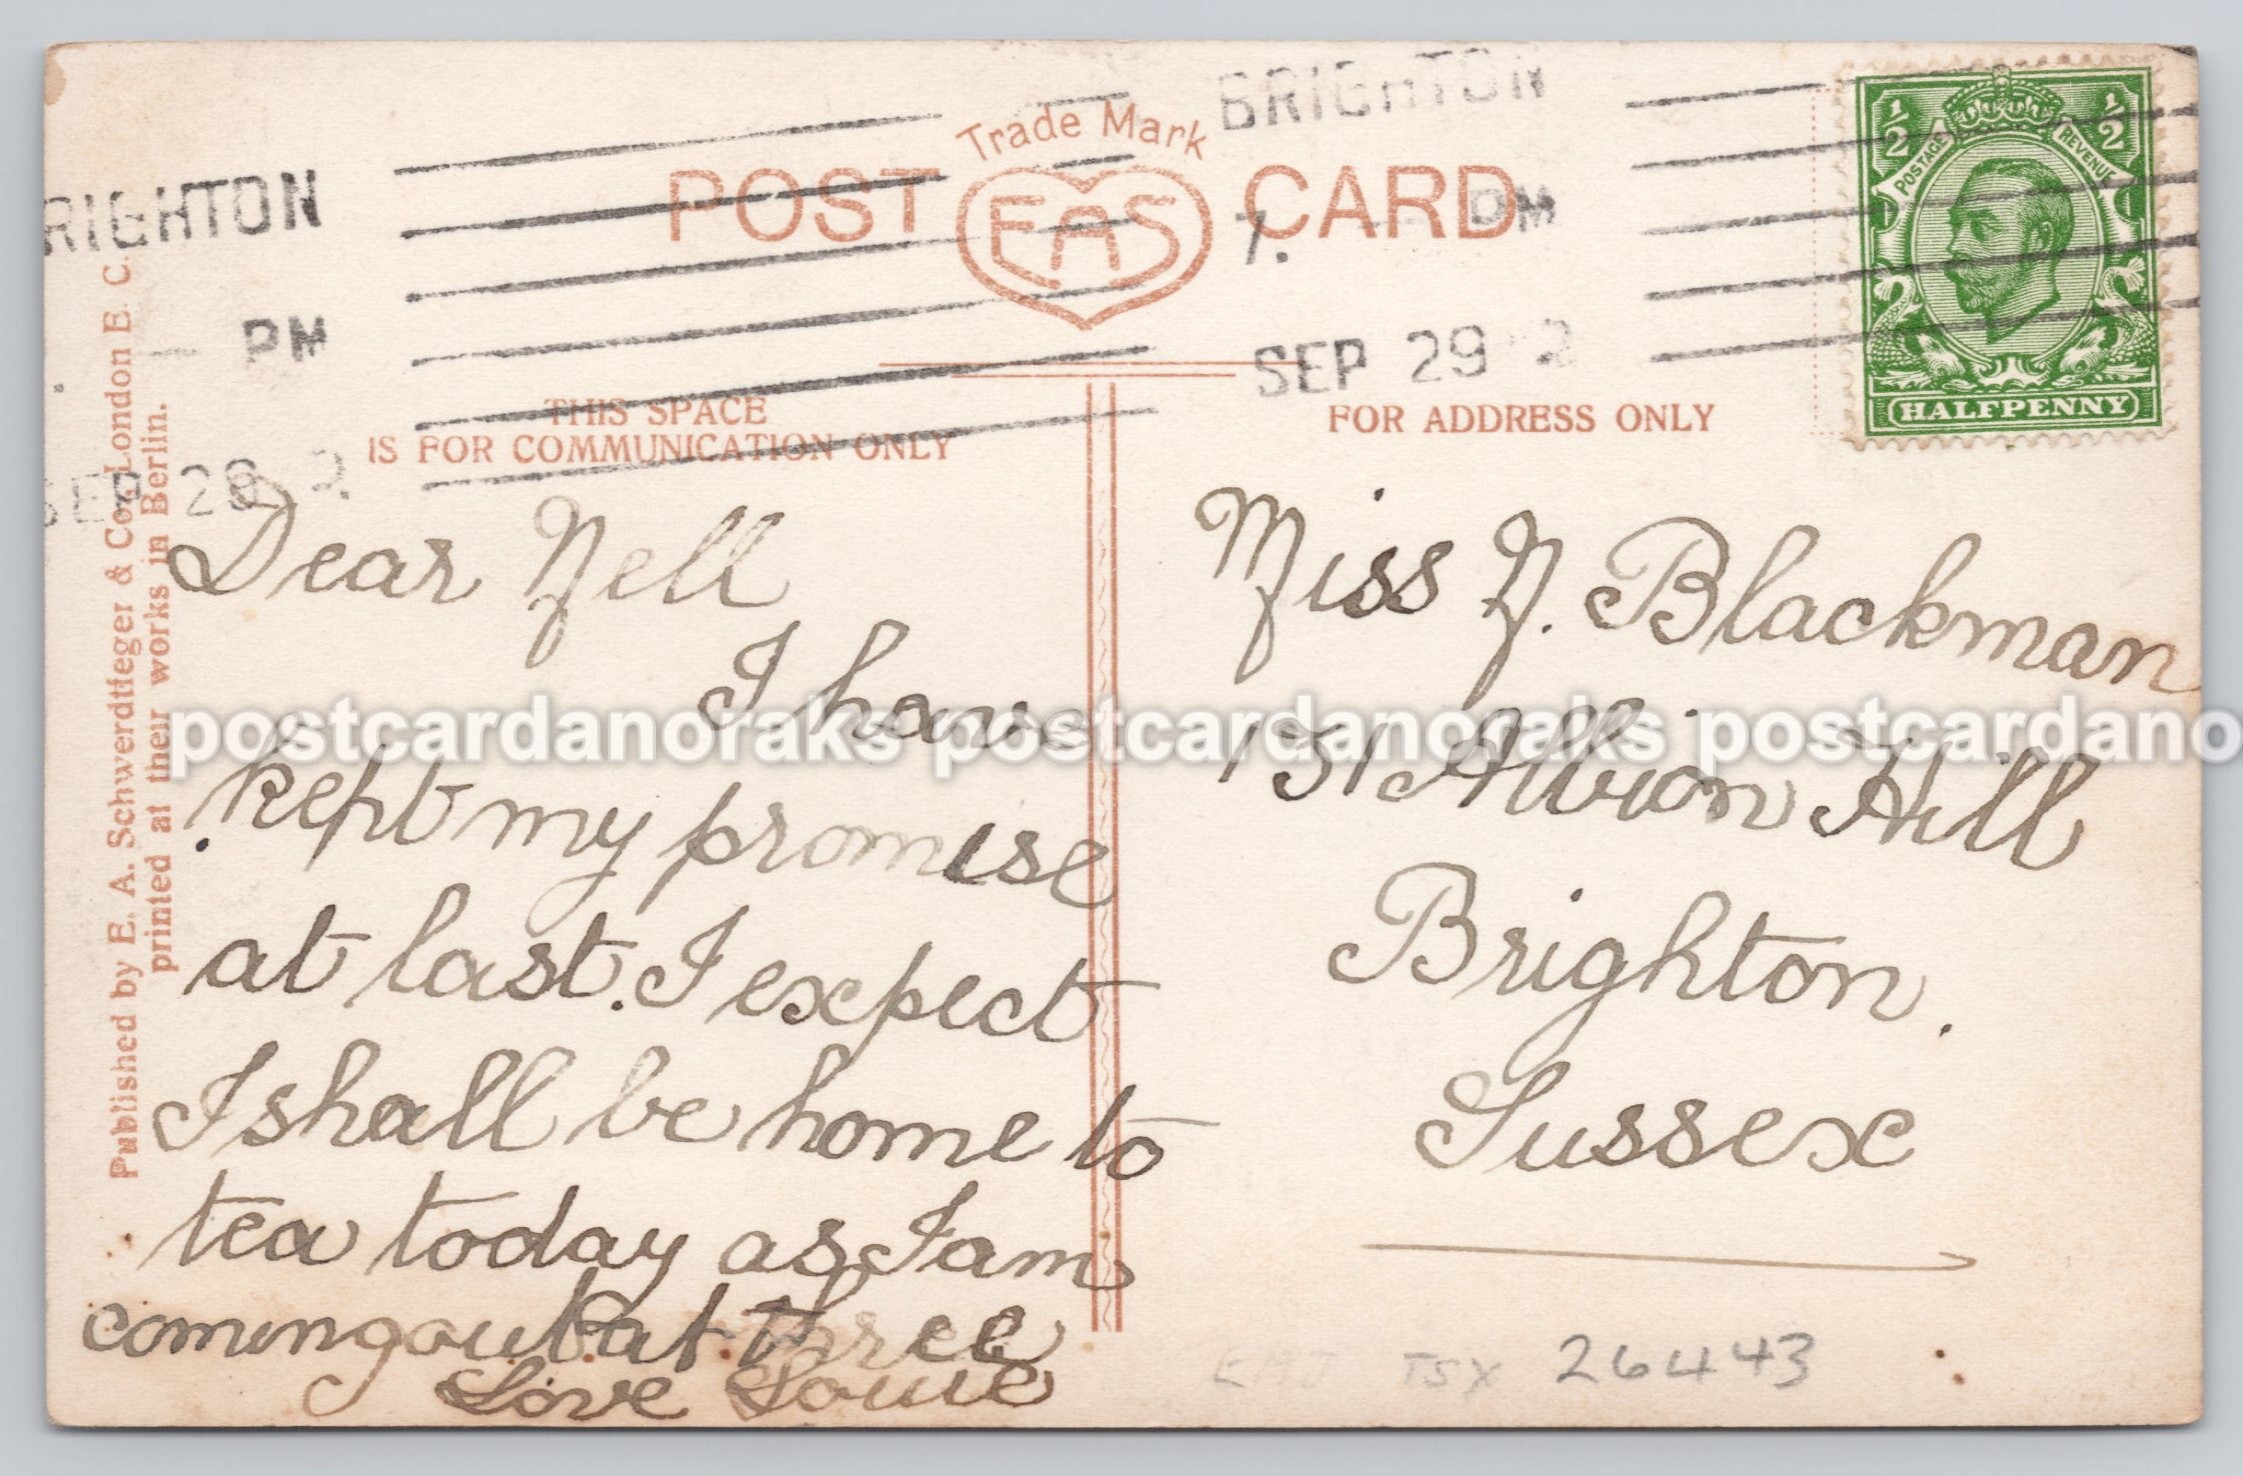 BRIGHTON
7. PM
SEP 29 2
RIGHTON
PM
SEP 29 2
Trade Mark
POST EAS CARD
½ ½
POSTAGE REVENUE
HALFPENNY
THIS SPACE
IS FOR COMMUNICATION ONLY
FOR ADDRESS ONLY
Published by E. A. Schwerdtfeger & Co. London E. C.
printed at their works in Berlin.
Dear Nell
I have
kept my promise
at last. I expect
I shall be home to
tea today as I am
coming out at three
Love Louie
Miss N. Blackman
131 Albion Hill
Brighton.
Sussex
TSX 26443
postcardanoraks postcardanoraks postcardano